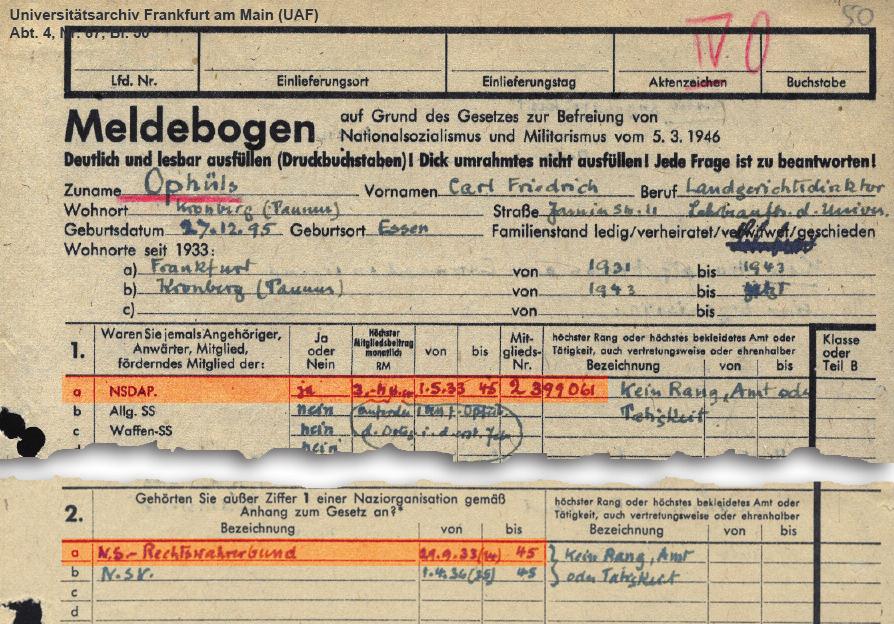 Universitätsarchiv Frankfurt am Main (UAF)
Abt. 4, Nr. 67, Bl. 50
50
IV 0
Lfd. Nr. Einlieferungsort Einlieferungstag Aktenzeichen Buchstabe
Meldebogen auf Grund des Gesetzes zur Befreiung von
Nationalsozialismus und Militarismus vom 5. 3. 1946
Deutlich und lesbar ausfüllen (Druckbuchstaben)! Dick umrahmtes nicht ausfüllen! Jede Frage ist zu beantworten!
Zuname Ophüls Vornamen Carl Friedrich Beruf Landgerichtsdirektor
Wohnort Kronberg (Taunus) Straße Lehrbeauftr. d. Univers.
Geburtsdatum 27.12.95 Geburtsort Essen Familienstand ledig/verheiratet/verwitwet/geschieden
Wohnorte seit 1933:
a) Frankfurt von 1931 bis 1943
b) Kronberg (Taunus) von 1943 bis jetzt
c) von bis
1. Waren Sie jemals Angehöriger, Anwärter, Mitglied, förderndes Mitglied der: Ja oder Nein Höchster Mitgliedsbeitrag monatlich RM von bis Mit-glieds-Nr. höchster Rang oder höchstes bekleidetes Amt oder Tätigkeit, auch vertretungsweise oder ehrenhalber Bezeichnung von bis Klasse oder Teil B
a NSDAP. ja 3.- 1.5.33 45 2399061 Kein Rang, Amt ode
b Allg. SS nein Tätigkeit
c Waffen-SS nein
nein
2. Gehörten Sie außer Ziffer 1 einer Naziorganisation gemäß Anhang zum Gesetz an?* höchster Rang oder höchstes bekleidetes Amt oder Tätigkeit, auch vertretungsweise oder ehrenhalber
Bezeichnung von bis Bezeichnung von bis
a N.S.-Rechtswahrerbund 45 Kein Rang, Amt
b N.S.V. 45 oder Tätigkeit
c
d